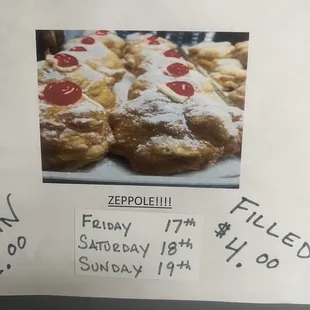 ZEPPOLE!!!!
FRIDAY 17th
SATURDAY 18th
SUNDAY 19th
FILLED
$4.00
.00